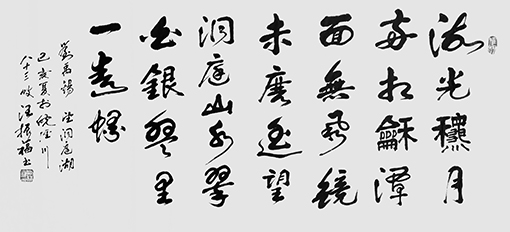 湖光龝月
兩相龢潭
面無風鏡
未磨遥望
洞庭山水翠
白銀盤里
一青螺
劉禹錫 望洞庭湖
己亥夏於
八十三叟汪振福書